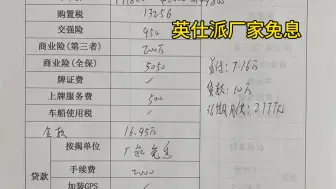 英仕派厂家免息
购置税 13256
交强险 950
商业险(第三者) 200万
商业险(全保) 5050
首付: 7.16万
牌证费 /
贷款: 10万
上牌服务费 500
36期 月供: 2777元
车船使用税 /
全款 16.95万
贷款
按揭单位 厂家免息
手续费 2000
加装GPS /